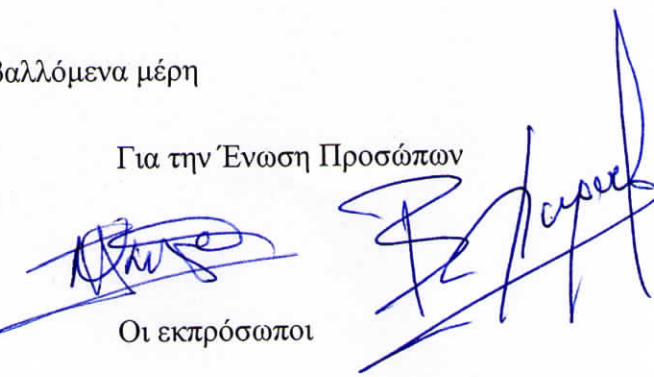 βαλλόμενα μέρη
Για την Ένωση Προσώπων
Οι εκπρόσωποι